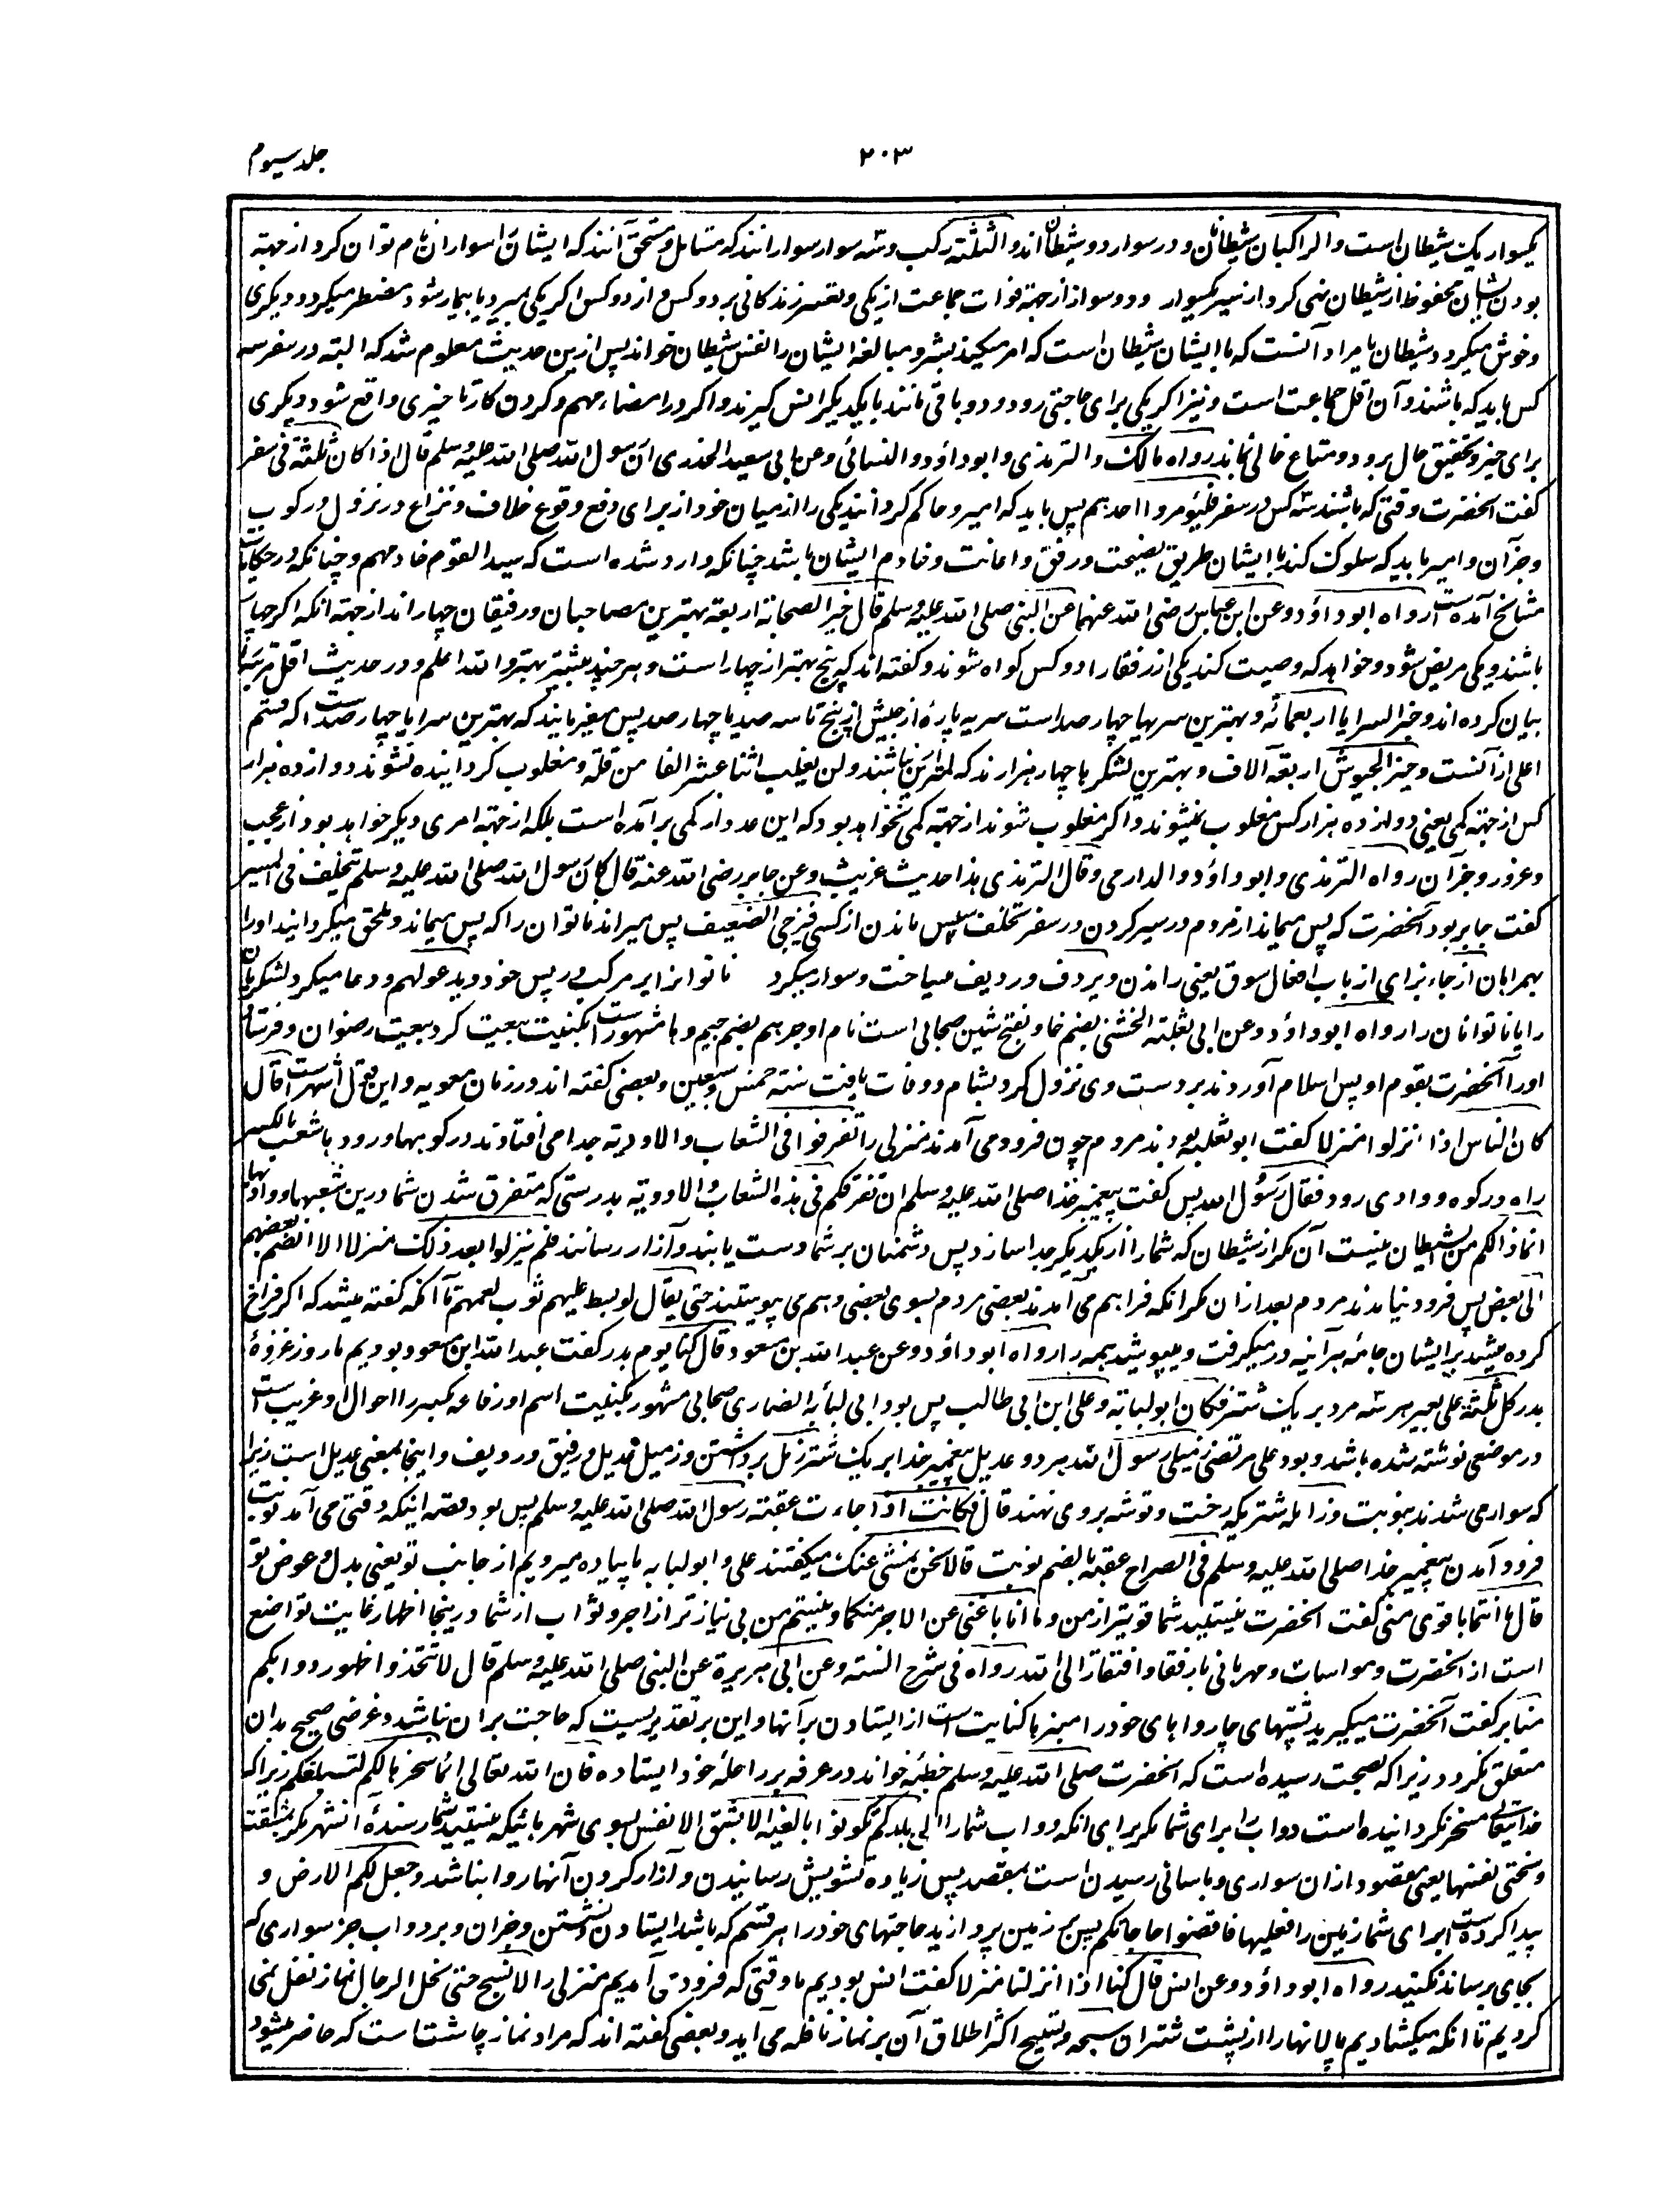 جلد سیوم
۲۰۳
یکسوار یک شیطان است والراکبان شیطانان ودر سوار دو شیطان اند والثلثة رکب وسه سوار سوارانند که متامل ومستحق آنند که ایشان را سواران نام توان کرد از جهة
بودن ایشان محفوظ از شیطان نهی کرد از سیر یکسوار ودو سوار از جهة فوات جماعت از یکی وتعسر زندکانی بر دو کس واز دو کس اکر یکی بمیرد یا بیمار شود مضطر میکردد ودیکری
وخوش میکردد شیطان یا مراد آنست که با ایشان شیطان است که امر میکند بشر ومبالغه ایشان را نفس شیطان خواند پس ازین حدیث معلوم شد که البته در سفر سه
کس باید که باشند وآن اقل جماعت است ونیز اکر یکی برای حاجتی رود ودو باقی مانند بایکدیکر انس کیرند واکر در امضاء مهم وکردن کار تاخیری واقع شود دیکری
برای خبر وتحقیق حال برود ومتاع خالی نماند رواه مالک والترمذی وابو داؤد والنسائی وعن ابی سعید الخدری ان رسول الله صلی الله علیه وسلم قال اذا کان ثلثة فی سفر
کفت آنحضرت وقتی که باشند سه کس در سفر فلیؤمروا احدهم پس باید که امیر وحاکم کردانند یکی را از میان خود از برای دفع وقوع خلاف ونزاع در نزول ورکوب
وجزآن وامیر باید که سلوک کند با ایشان طریق نصیحت ورفق واعانت وخادم ایشان باشد چنانکه وارد شده است که سید القوم خادمهم وچنانکه در حکایات
مشایخ آمده است رواه ابو داؤد وعن ابن عباس رضی الله عنهما عن النبی صلی الله علیه وسلم قال خیر الصحابة اربعة بهترین مصاحبان ورفیقان چهار اند از جهة آنکه اکر چهار
باشند ویکی مریض شود وخواهد که وصیت کند یکی از رفقا را دو کس کواه شوند وکفته اند که پنج بهتر از چهار است وهر چند بیشتر بهتر والله اعلم ودر حدیث اقل مرتبه را
بیان کرده اند وخیر السرایا اربعمائة وبهترین سریها چهار صد است سریه پارهٔ از جیش از پنج تا سه صد یا چهار صد پس میفرمایند که بهترین سرایا چهار صد است که قسم
اعلی از آنست وخیر الجیوش اربعة آلاف وبهترین لشکرها چهار هزار ند که کمتر ازین نباشند ولن یغلب اثنا عشر الفا من قلة ومغلوب کردانیده نشوند دوازده هزار
کس از جهة کمی یعنی دوازده هزار کس مغلوب نمیشوند واکر مغلوب شوند از جهة کمی نخواهد بود که این عدد از کمی برآمده است بلکه از جهة امری دیکر خواهد بود از عجب
وغرور وجزآن رواه الترمذی وابو داؤد والدارمی وقال الترمذی هذا حدیث غریب وعن جابر رضی الله عنه قال کان رسول الله صلی الله علیه وسلم یتخلف فی المسیر
کفت جابر بود آنحضرت که پس میماند از مردم در سیر کردن در سفر تخلف پس ماندن از کسی فیزجی الضعیف پس میراند ناتوان را که پس میماند وملحق میکردانید او را
بهمراهان ازجاء بزای از باب افعال سوق یعنی راندن ویردف وردیف میساخت وسوار میکرد ناتوان را بر مرکب در پس خود ویدعو لهم ودعا میکرد لشکریان
را یا ناتوانان را رواه ابو داؤد وعن ابی ثعلبة الخشنی بضم خا وبفتح شین صحابی است نام او جرهم بضم جیم وها مشهور است بکنیت بیعت کرد بیعت رضوان وفرستاد
اورا آنحضرت بقوم او پس اسلام آوردند بر دست وی نزول کرد بشام ووفات یافت سنة خمس وسبعین وبعضی کفته اند در زمان معویه واین قول اشهر است قال
کان الناس اذا نزلوا منزلا کفت ابو ثعلبه بودند مردم چون فرود می آمدند منزلی را تفرقوا فی الشعاب والاودیة جدا می افتادند در کوهها ورودها شعب بالکسر
راه در کوه ووادی رود فقال رسول الله پس کفت پیغمبر خدا صلی الله علیه وسلم ان تفرقکم فی هذه الشعاب والاودیة بدرستی که متفرق شدن شما درین شعبها ووادیها
انما ذالکم من الشیطان نیست آن مکر از شیطان که شما را از یکدیکر جدا سازد پس دشمنان بر شما دست یابند وآزار رسانند فلم ینزلوا بعد ذلک منزلا الا انضم بعضهم
الی بعض پس فرود نیامدند مردم بعد ازان مکر آنکه فراهم می آمدند بعضی مردم بسوی بعضی وبهم می پیوستند حتی یقال لو بسط علیهم ثوب لعمهم تا آنکه کفته میشد که اکر فراخ
کرده میشد بر ایشان جامهٔ هرآئینه در میکرفت ومیپوشید همه را رواه ابو داؤد وعن عبد الله بن مسعود قال کنا یوم بدر کفت عبد الله ابن مسعود بودیم ما روز غزوهٔ
بدر کل ثلثة علی بعیر هر سه مرد بر یک شتر فکان ابو لبابة وعلی ابن ابی طالب پس بود ابی لبابه انصاری صحابی مشهور بکنیت اسم او رفاعه بکسر را احوال او غریب است
در موضعی نوشته شده باشد وبود علی مرتضی زمیلی رسول الله هر دو عدیل پیغمبر خدا بر یک شتر زمل برداشتن وزمیل عدیل ورفیق وردیف واینجا بمعنی عدیل است زیرا
که سوار می شدند بنوبت وزامله شتریکه رخت وتوشه بر وی نهند قال فکانت اذا جاءت عقبة رسول الله صلی الله علیه وسلم پس بود قصه اینکه وقتی می آمد نوبت
فرود آمدن پیغمبر خدا صلی الله علیه وسلم فی الصراح عقبه بالضم نوبت قالا نحن نمشی عنک میکفتند علی وابو لبابه ما پیاده میرویم از جانب تو یعنی بدل وعوض تو
قال ما انتما باقوی منی کفت آنحضرت نیستید شما قویتر از من وما انا باغنی عن الاجر منکما ونیستم من بی نیاز تر از اجر وثواب از شما درینجا اظهار غایت تواضع
است از آنحضرت ومواسات ومهربانی با رفقا وافتقار الی الله رواه فی شرح السنة وعن ابی هریرة عن النبی صلی الله علیه وسلم قال لا تتخذوا ظهور دوابکم
منابر کفت آنحضرت میکیرید پشتهای چاروا های خود را منبرها کنایت است از ایستادن بر آنها واین بر تقدیریست که حاجت بران نباشد وغرضی صحیح بدان
متعلق نکردد زیرا که بصحت رسیده است که آنحضرت صلی الله علیه وسلم خطبه خواند در عرفه بر راحلهٔ خود ایستاده فان الله تعالی انما سخرها لکم لتبلغکم زیرا که
خدایتعالی مسخر نکردانیده است دواب را برای شما مکر برای آنکه دواب شما را الی بلد لم تکونوا بالغیه الا بشق الانفس بسوی شهر هائیکه نیستید شما رسندهٔ آن شهر مکر بمشقت
وسختی نفسها یعنی مقصود ازان سواری وبآسانی رسیدن است بمقصد پس زیاده تشویش رسانیدن وآزار کردن آنها روا نباشد وجعل لکم الارض و
پیدا کرده است برای شما زمین را فعلیها فاقضوا حاجاتکم پس بر زمین پردازید حاجتهای خود را هر قسم که باشد ایستادن ونشستن وجزآن وبر دواب جز سواری که
بجای برساند نکنید رواه ابو داؤد وعن انس قال کنا اذا نزلنا منزلا کفت انس بودیم ما وقتی که فرود می آمدیم منزلی را لا نسبح حتی نحل الرحال نماز نفل نمی
کردیم تا آنکه میکشادیم ما پالانها را از پشت شتران سبحه وتسبیح اکثر اطلاق آن بر نماز نافله می آید وبعضی کفته اند که مراد نماز چاشت است که حاضر میشود